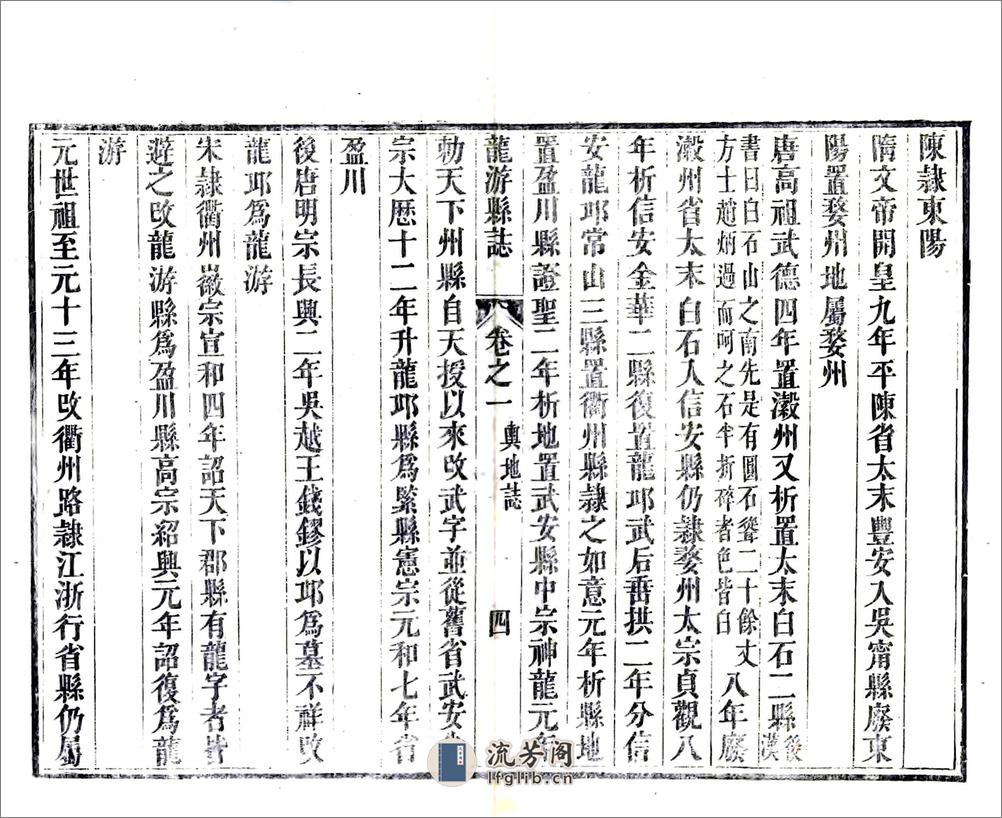 陳隸東陽
隋文帝開皇九年平陳省太末豐安入吳甯縣廢東
陽置婺州地屬婺州
唐高祖武德四年置瀫州又析置太末白石二縣後漢
書曰白石山之南先是有圓石聳二十餘丈
方士趙炳過而呵之石半折碎者色皆白八年廢
瀫州省太末白石入信安縣仍隸婺州太宗貞觀八
年析信安金華二縣復置龍邱武后垂拱二年分信
安龍邱常山三縣置衢州縣隸之如意元年析縣地
置盈川縣證聖二年析地置武安縣中宗神龍元年
龍游縣誌 卷之一 輿地誌 四
勅天下州縣自天授以來改武字並從舊省武安
宗大歷十二年升龍邱縣爲緊縣憲宗元和七年省
盈川
後唐明宗長興二年吳越王錢鏐以邱爲墓不祥改
龍邱爲龍游
宋隸衢州徽宗宣和四年詔天下郡縣有龍字者皆
避之改龍游縣爲盈川縣高宗紹興元年詔復爲龍
游
元世祖至元十三年改衢州路隸江浙行省縣仍屬
流芳阁
lfglib.cn